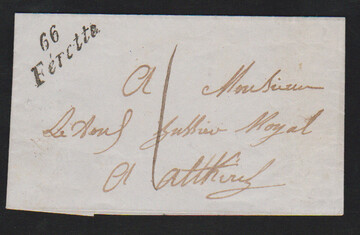 66
Férette
A Monsieur
1
Huissier Royal
A altkirch